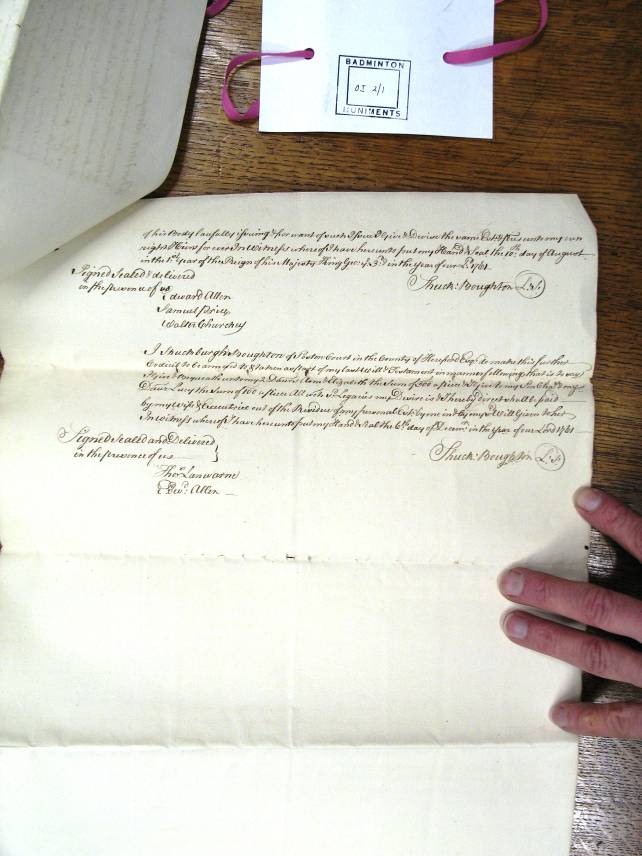 BADMINTON
OI 2/1
MUNIMENTS
of his Body lawfully issuing & for want of such Issue I Give & Devise the same unto my own
right Heirs for ever In Witness whereof I have hereunto put my Hand & Seal the 10th day of August
in the 1st year of the Reign of his Majesty King Geo: ye 3rd in the year of our Ld 1761
Signed Sealed & delivered
in the presence of us
Shuck: Boughton L.S.
Edward Allen
Samuel
Walter Churches
I Shuckburgh Boughton of Poston Court in the County of Hereford Esqr do make this further
Codicil to be annexed to & taken as part of my last Will & Testament in manner following that is to say
I Give & Bequeath unto my 2 Daurs & Elizabeth the Sum of 500 a piece I Give to my Son & my
Daur Lucy the Sum of 100 a piece All wch Legacies my Desire is & I hereby direct shall be paid
by my Wife & Executrix out of the Residue of my personal Este by me in & by my Will Given to her
In Witness whereof I have hereunto put my Hand & Seal the 6th day of Decemr in the year of our Lord 1761
Signed Sealed and Delivered
in the presence of us
Shuck: Boughton L.S.
Thos Lanwarne
Edwd Allen